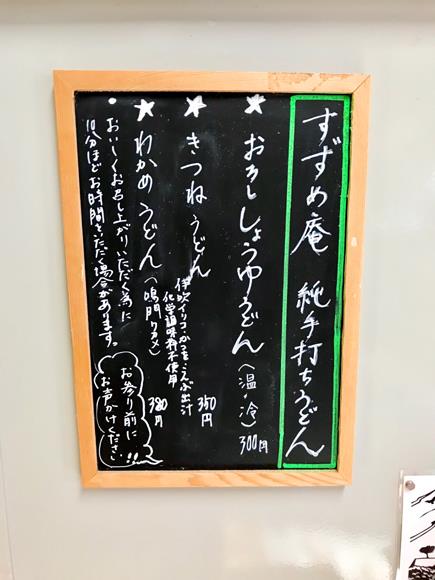 すずめ庵 純手打ちうどん
★おろししょうゆうどん(温・冷) 300円
★きつねうどん 350円
伊吹イリコ・かつを・こんぶ出汁
化学調味料不使用
★わかめうどん(鳴門ワカメ) 380円
・おいしくお召し上がりいただく為に
10分ほどお時間をいただく場合があります。
お参り前に
お声かけください!!